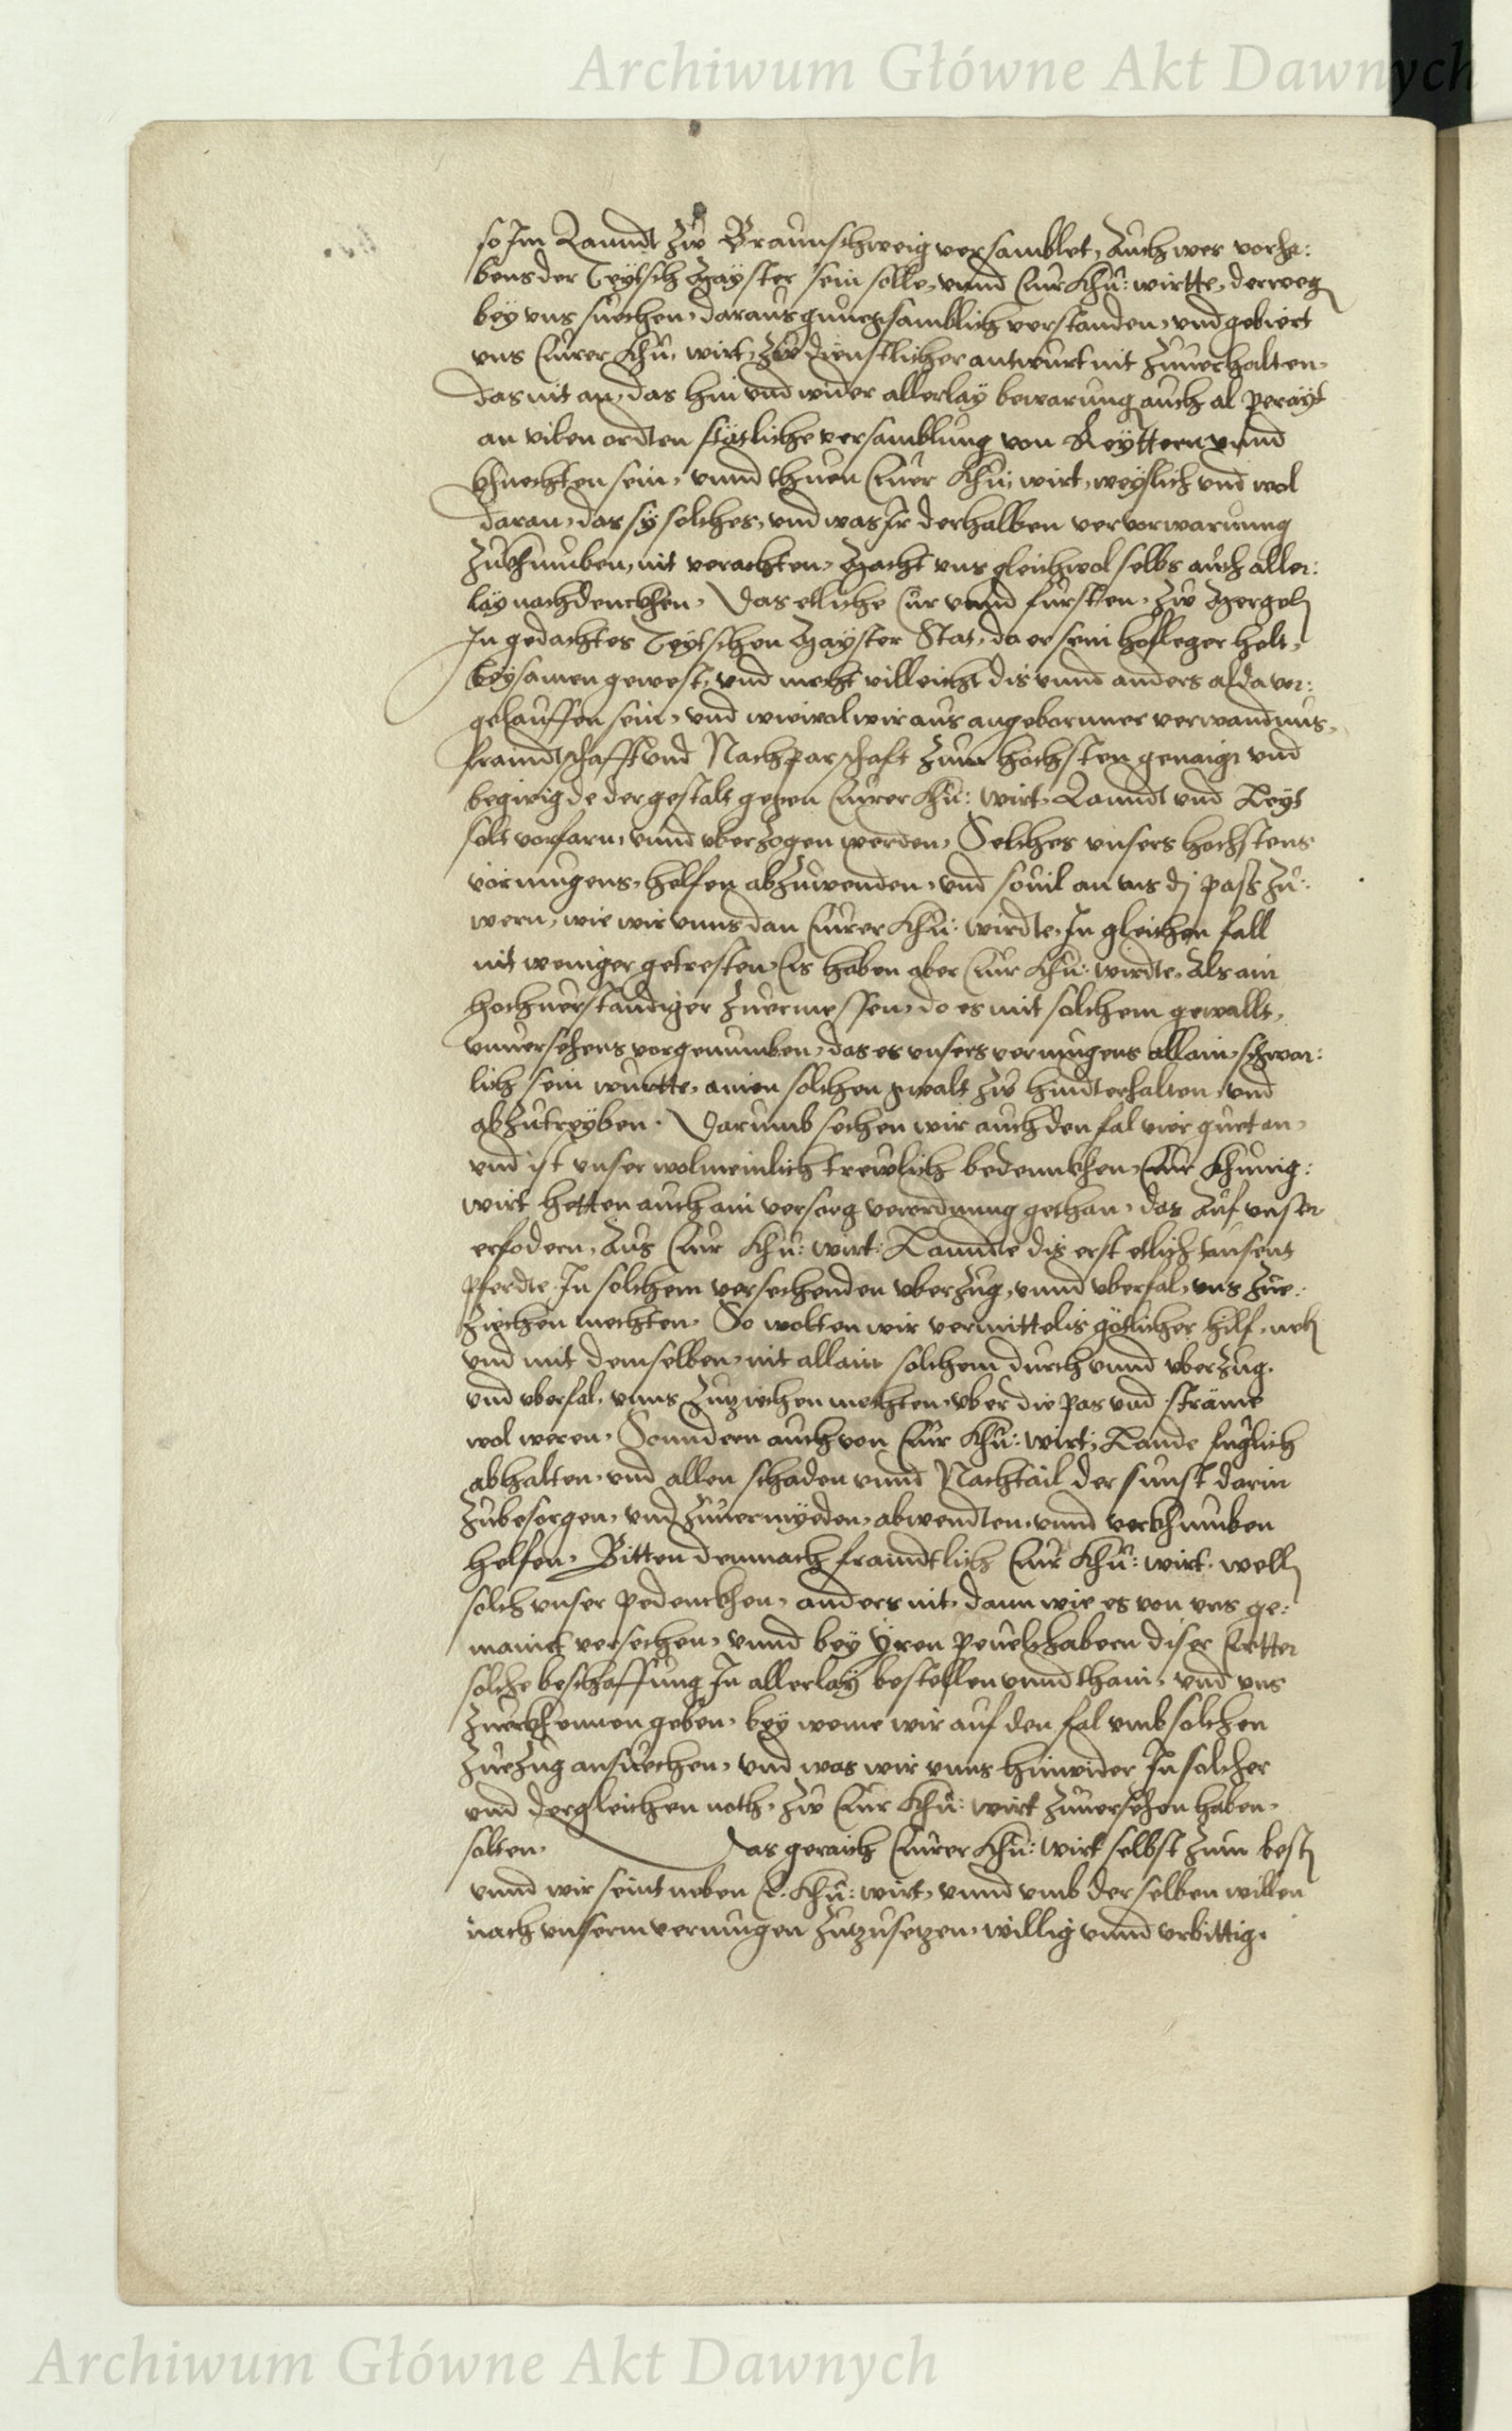 Archiwum Główne Akt Dawnych
so Im Lanndt zw Braunschweig versamblet, Auch wes vorha:
bens der Teytsch Mayster sein solle, vnnd Eur Khü: wirtte, derweg
bey vns suechen, daraus gnuegsamblich verstanden, vnd gebiert
vns Eurer Khü. wirt, zw dienstlicher antwurt nit zuuerhalten,
das nit an, das hin vnd wider allerlay bewarung auch al perayt
an vilen ordten statliche versamblung von Reyttern vnnd
Khnechten sein, vnnd thuen Euer Khü: wirt, weyslich vnd wol
daran, das sy solches, vnd was Ir derhalben ver vorwarnung
zuekhumben, nit verachten, Macht vns gleichwol selbs auch aller:
lay nachdenckhen, Das etliche Cur vnnd fürsten, zw Mergeth
In gedachtes Teytschen Mayster Stat, da er sein hofleger helt,
beysamen gewest, vnd mecht villeicht dis vnnd anders alda ver:
gelauffen sein, vnd wiewol wir aus angeborner verwandnus,
fraindtschafft vnd Nachparschaft zum hochsten genaigt vnd
begirig de dergestalt gegen Eurer Khü: wirt, Lanndt vnd Leyt
solt vorfarn, vnnd vberzogen werden, Solches vnsers hochstens
vörmugens, helfen abzuwenden, vnd souil an vns dj pass zu:
wern, wie wir vnns dan Eurer Khü: wirdte, In gleichen fall
nit weniger getresten, Es haben aber Eur Khü: wirdte, Als ain
hochuerstandiger zuermessen, do es mit solchem gewallt,
vnuersehens vorgenumben, das es vnsers vermugens allain, schwer:
lich sein wurtte, ainen solchen gwalt zw hindterhalten, vnd
abzutreyben. Darumb sechen wir auch den fal vier guet an,
vnd ist vnser wolmeinlich trewlich bedennkhen, Eur Khunig:
wirt hetten auch ain versorg verordnung gethan, das Auf vnser
erfodern, Aus Eur Khü: wirt: Lanndte dis erst etlich tausent
Pferdte In solchem versechenden vberzug, vnnd vberfal, vns zue:
ziechen mechten. So wolten wir vermittelis götlicher hilf, neb
vnd mit demselben, nit allain solchem durch vnnd vberzug.
vnd vberfal, vnns zuziechen mechten, vber die pas vnd strame
wol weren, Sonndern auch von Eur Khü: wirt: Lande fueglich
abhalten, vnd allen schaden vnnd Nachtail der sunst darin
zubesorgen, vnd zuuermyeden, abwendten, vnnd verkhumben
helfen, Bitten demnach fraindtlich Eur Khü: wirt. well
solch vnser pedenckhen, anders nit, dann wie es von vns ge:
maint versechen, vnnd bey yren peuelchabern diser Ertter
solche beschaffung In allerlay bestellen vnnd thain, vnd vns
zuerkhennen geben, bey weme wir auf den fal vmb solchen
zuezug ansuechen, vnd was wir vnns hinwider In solcher
vnd dergleichen noth, zw Eur Khü: wirt zuuersehen haben,
solten. Das geraich Eurer Khü: wirt selbst zum best
vnnd wir seint neben E. Khü: wirt, vnnd vmb derselben willen
nach vnserm vermugen zuzusetzen, willig vnnd vrbittig.
Archiwum Główne Akt Dawnych